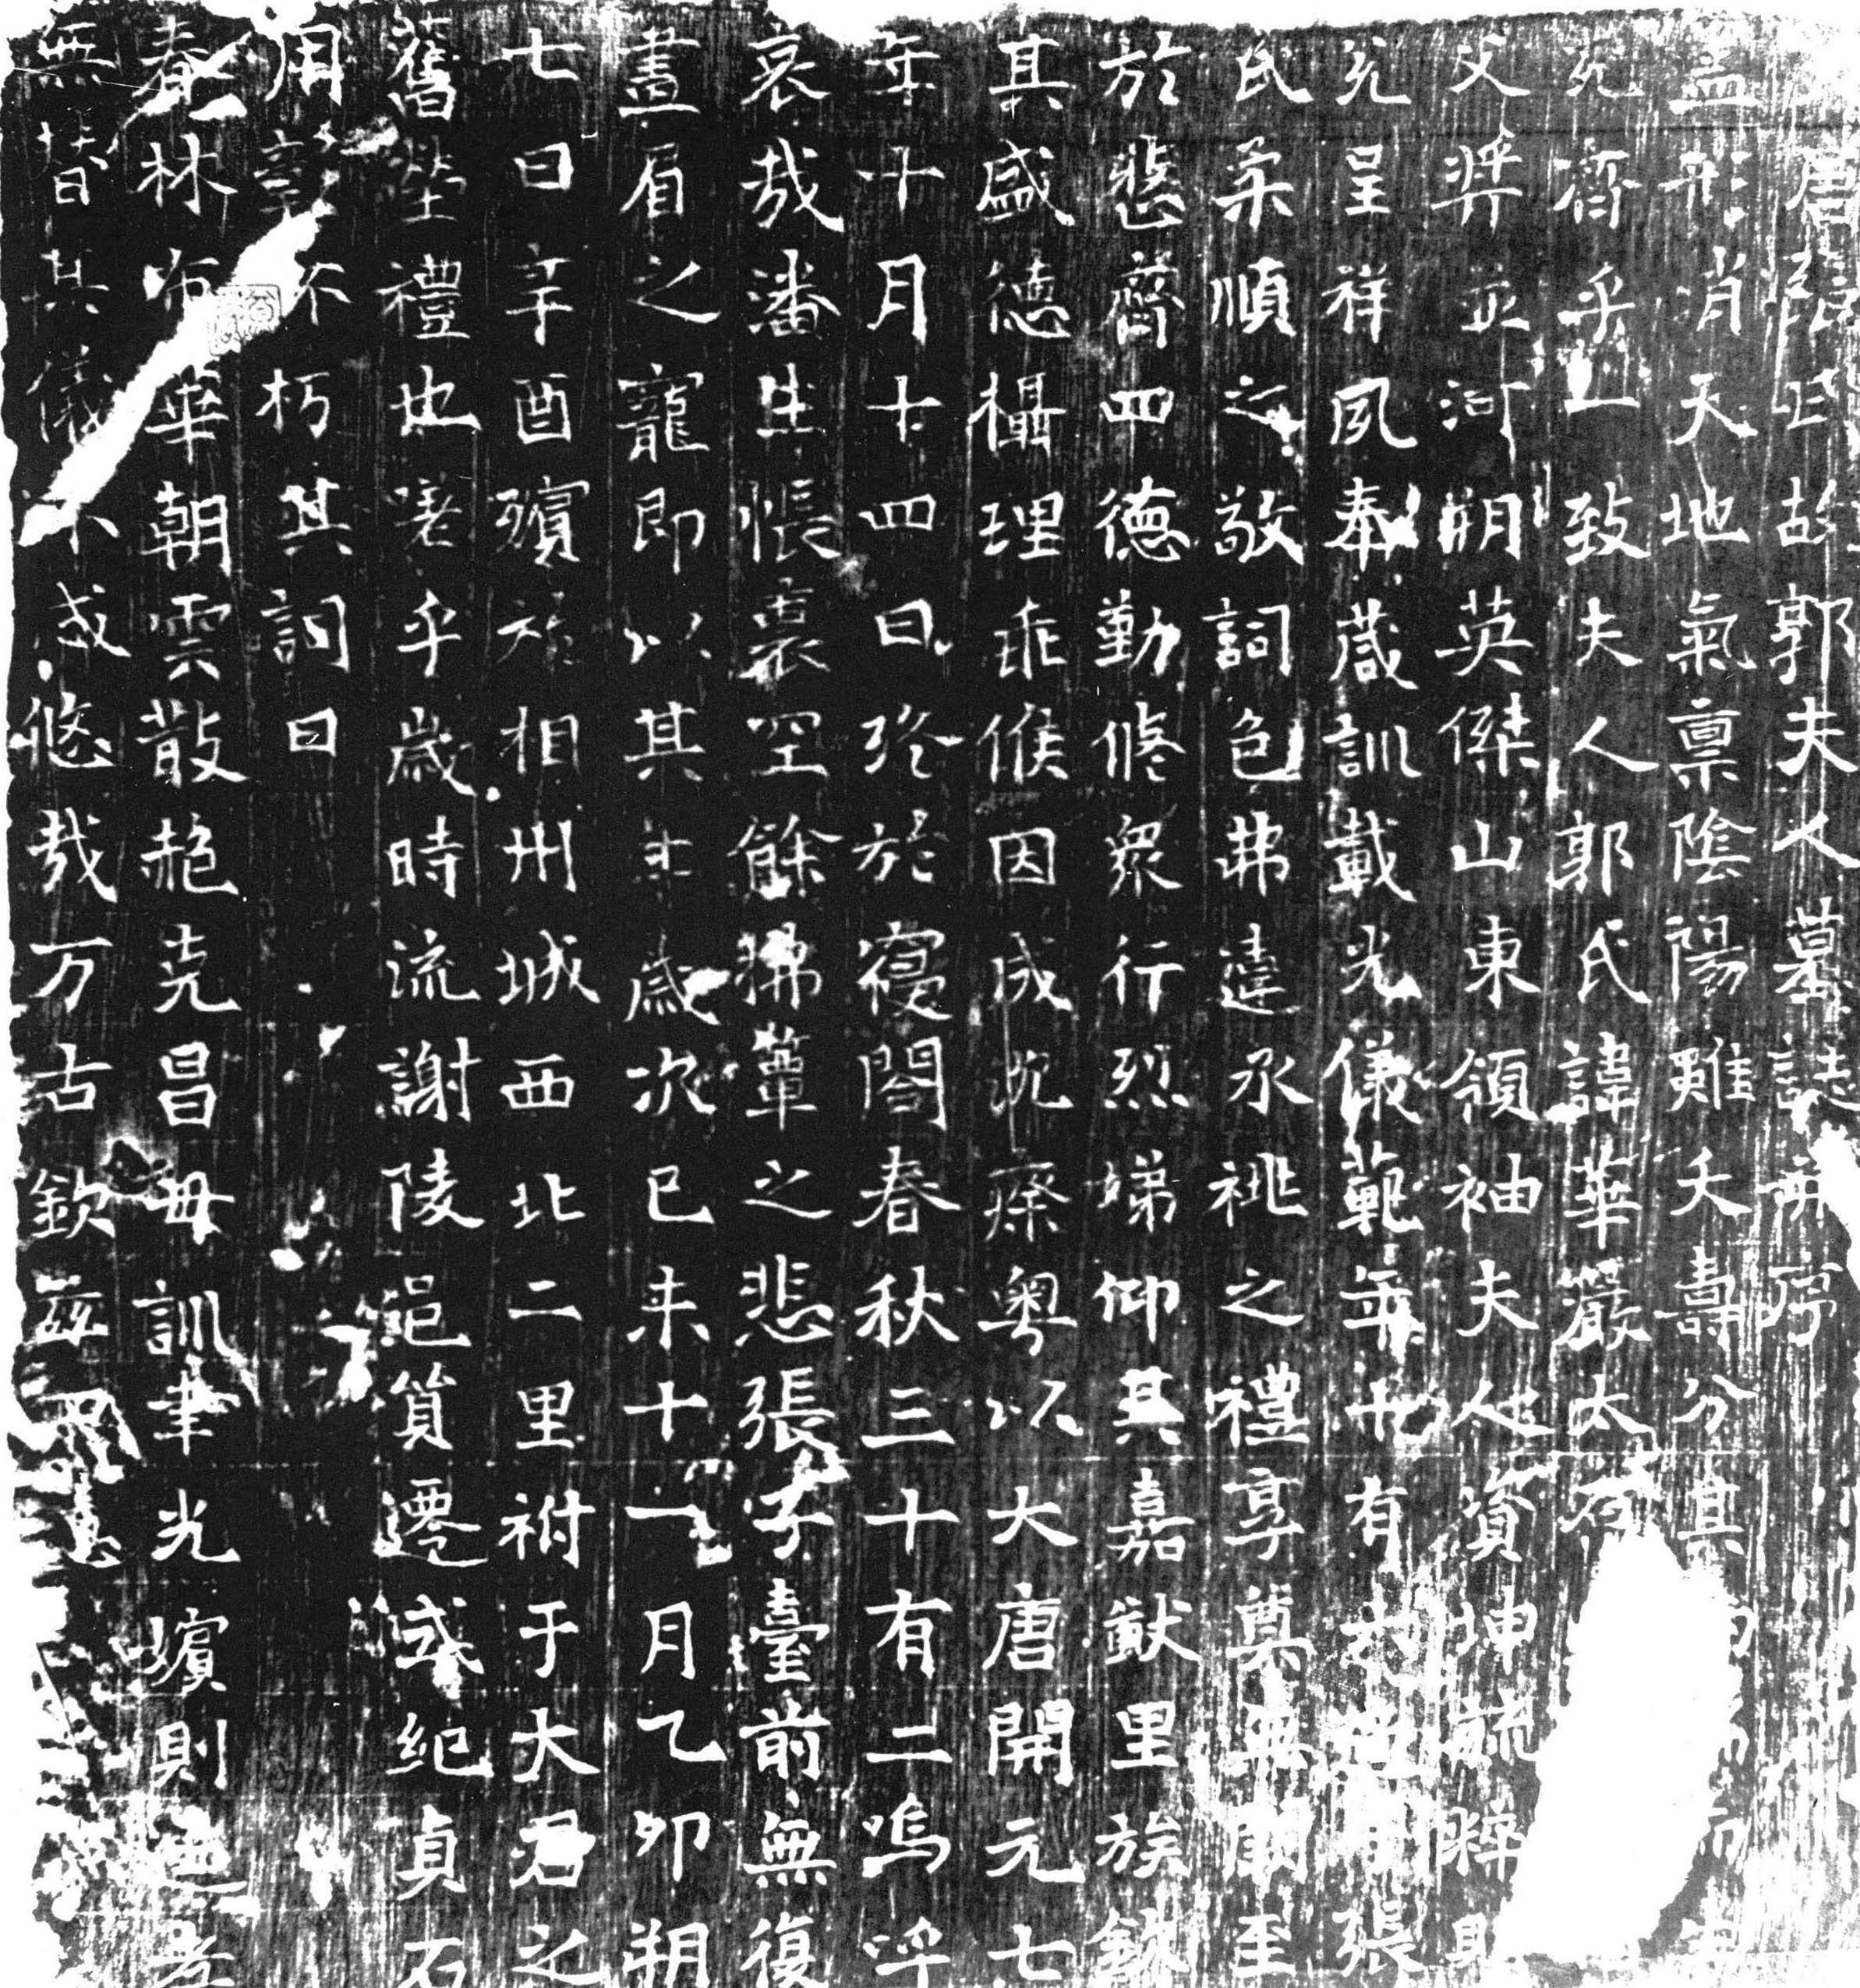 唐張氏故郭夫人墓誌并序
盖形消天地氣禀陰陽雖夭壽分其
究齊乎一致夫人郭氏諱華嚴太
父弈並河朔英傑山東領袖夫人資坤毓粹
兆呈祥夙奉葴訓載光儀範年廿有張
氏柔順之敬詞色弗違承祧之禮享奠無闕至
於慈齊四德勤脩衆行烈娣仰其嘉猷里族欽
其盛德攝理乖候因成沈瘵粤以大唐開元七
年十月十四日終於寢閤春秋三十有二嗚呼
哀哉潘生悵裏空餘拂簟之悲張子臺前無復
畫眉之寵即以其年歲次己未十一月乙卯朔
七日辛酉殯於相州城西北二里祔于大君之
舊塋禮也嗟乎歲時流謝陵邑貿遷式紀貞石
用章不朽其詞曰
春林布華朝雲散艷克昌毋訓聿光嬪則
無替其儀不忒悠哉万古欽兹